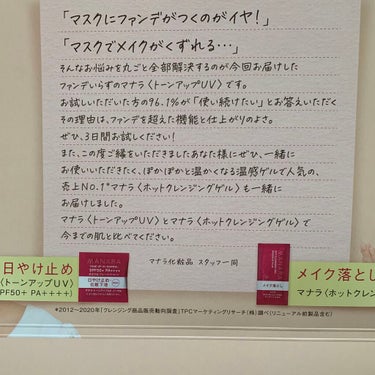 「マスクにファンデがつくのがイヤ!」
「マスクでメイクがくずれる…」
そんなお悩みを丸ごと全部解決するのが今回お届けした
ファンデいらずのマナラ〈トーンアップUV〉です。
お試しいただいた方の96.1%が「使い続けたい」とお答えいただく
その理由は、ファンデを超えた機能と仕上がりのよさ。
ぜひ、3日間お試しください!
また、この度ご縁をいただきましたあなた様にぜひ、一緒に
お使いいただきたく、ぽかぽかと温かくなる温感ゲルで人気の、
売上NO.1*マナラ〈ホットクレンジングゲル〉も一緒に
お届けしました。
マナラ〈トーンアップUV〉とマナラ〈ホットクレンジングゲル〉で
今までの肌と比べてください。
マナラ化粧品 スタッフ一同
日やけ止め
〈トーンアップUV〉
PF50+ PA++++)
MANARA
SPF50+ PA++++
日やけ止め
化粧下地
メイク落とし
メイク落とし
マナラ〈ホットクレン
*2012~2020年「クレンジング商品販売動向調査」TPCマーケティングリサーチ(株)調べ(リニューアル前製品含む)